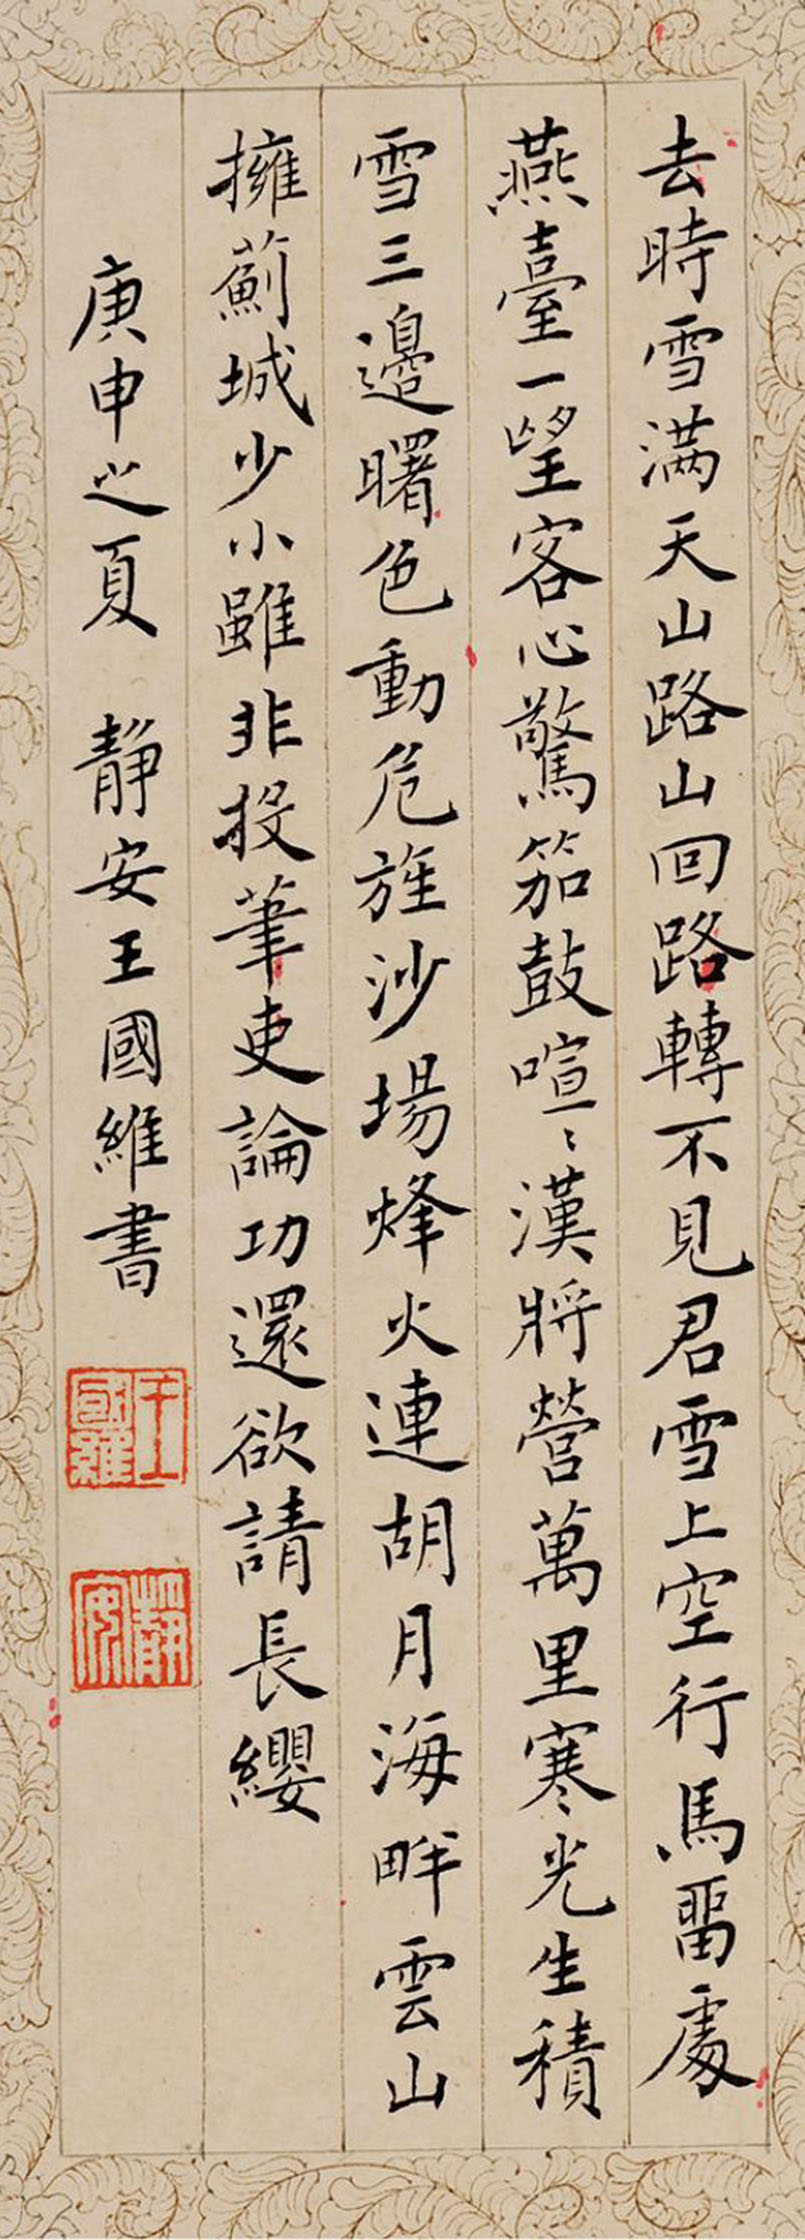 去時雪滿天山路山回路轉不見君雪上空行馬畱處
燕臺一望客心驚笳鼓喧〻漢將營萬里寒光生積
雪三邊曙色動危旌沙場烽火連胡月海畔雲山
擁薊城少小雖非投筆吏論功還欲請長纓
庚申之夏 靜安王國維書
王國維
靜安